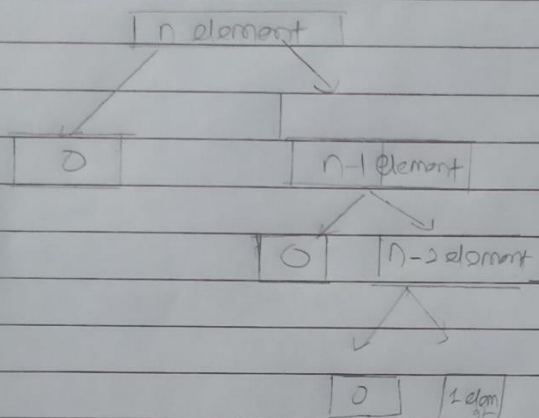 n element
0 n-1 element
0 n-2 element
0 1 elem